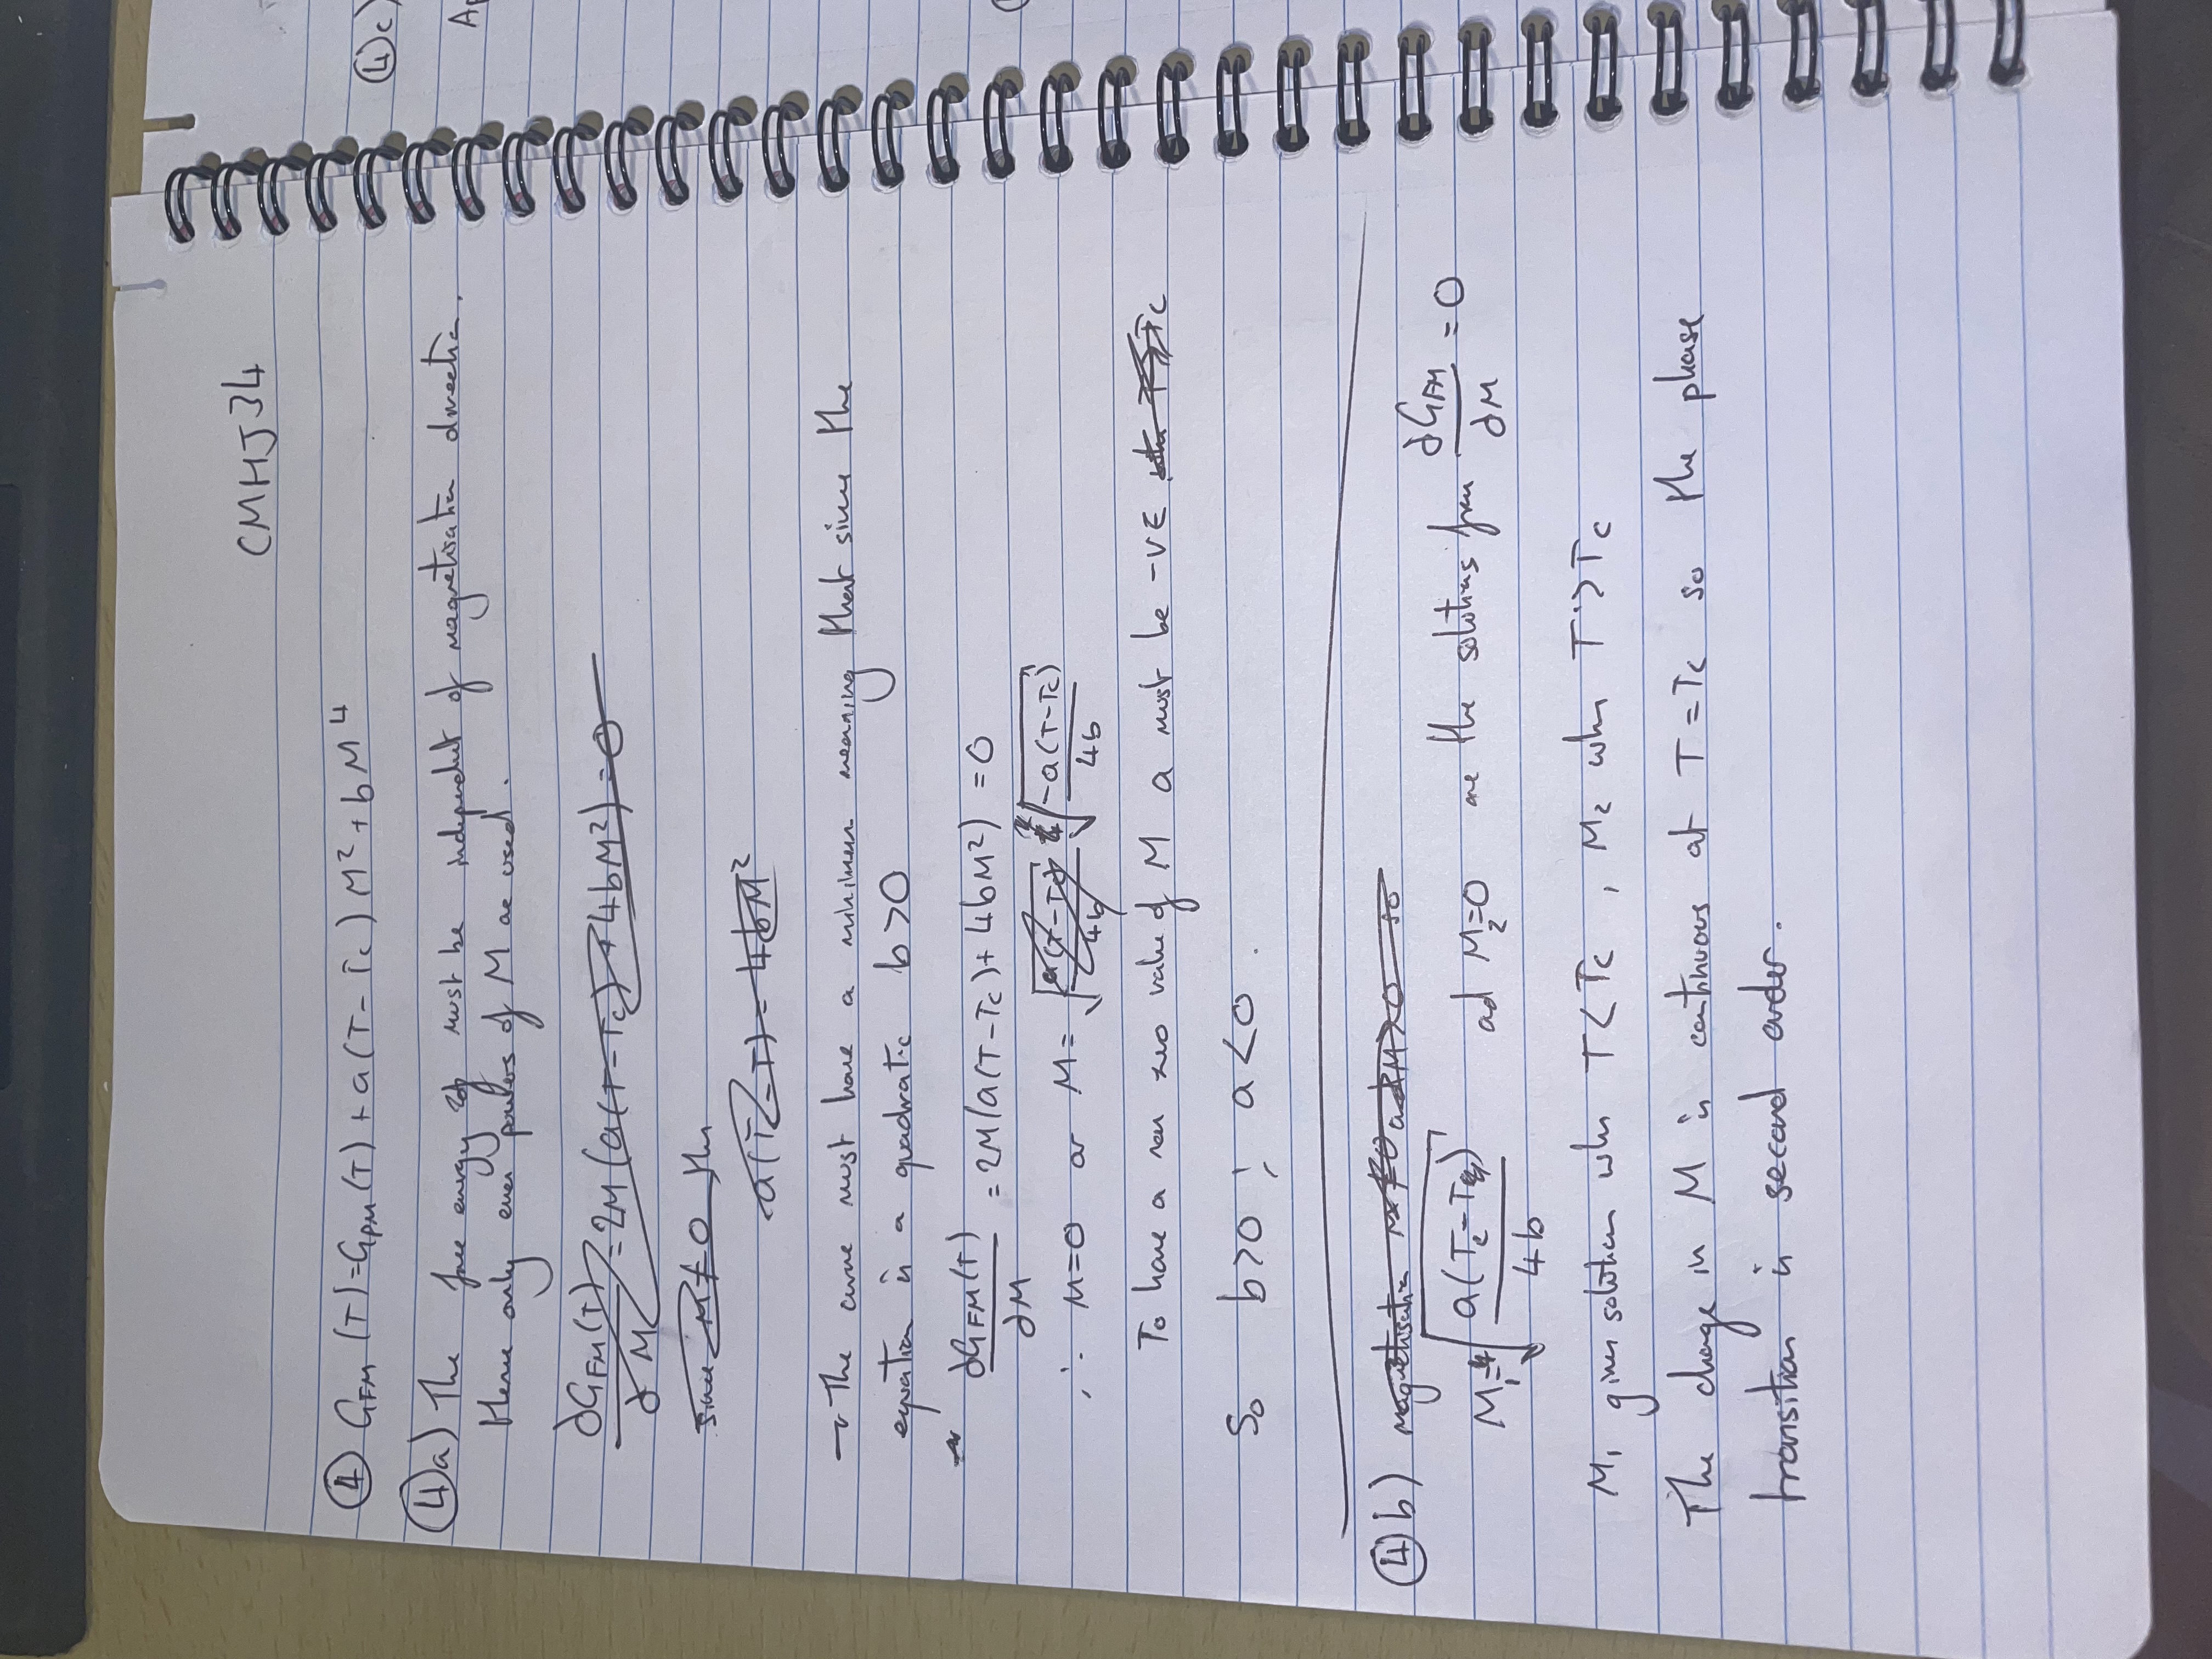 CMHJ34
④ G_FM (T)=G_PM (T) + a(T-Tc) M² + bM⁴
④a) The free energy must be independent of magnetisation direction.
Hence only even powers of M are used.
∂G_FM(T)/∂M = 2M (a(T-Tc) + 4bM²) = 0
since M≠0 then
a(Tc-T) = 4bM²
→ The curve must have a minimum meaning that since the
equation is a quadratic b>0
∂G_FM(T)/∂M = 2M(a(T-Tc)+ 4bM²) = 0
∴ M=0 or M= √(a(T-Tc)/4b) √(-a(T-Tc)/4b)
To have a non zero value of M a must be -VE when T>Tc
So b>0 ; a<0.
④b) magnetisation M≠0 and M>0 so
M₁=√(a(Tc-T)/4b) and M₂=0 are the solutions from ∂G_FM/∂M = 0
M₁ gives solution when T<Tc , M₂ when T>Tc
The change in M is continuous at T=Tc so the phase
transition is second order.
④c)